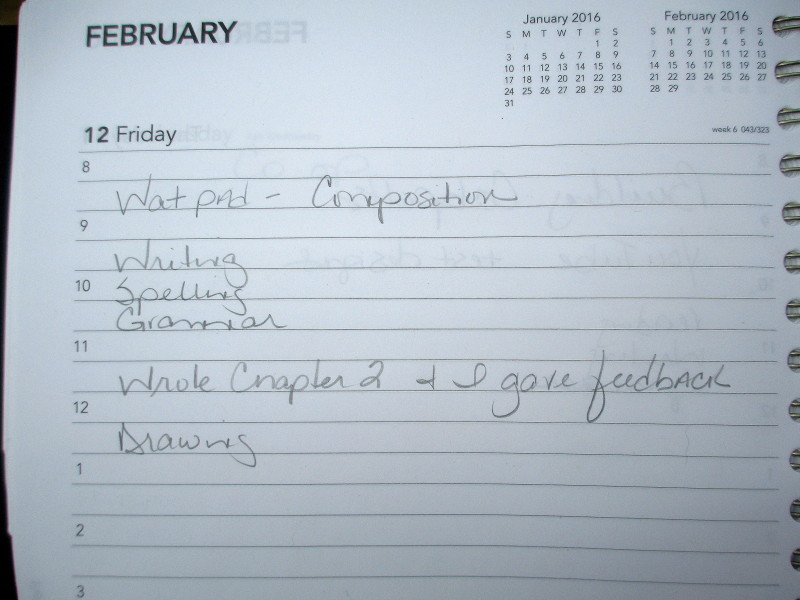 FEBRUARY
January 2016
S M T W T F S
1 2
3 4 5 6 7 8 9
10 11 12 13 14 15 16
17 18 19 20 21 22 23
24 25 26 27 28 29 30
31
February 2016
S M T W T F S
1 2 3 4 5 6
7 8 9 10 11 12 13
14 15 16 17 18 19 20
21 22 23 24 25 26 27
28 29
12 Friday
week 6 043/323
8
Wat pad - Composition
9
Writing
10 Spelling
Grammar
11
Wrote Chapter 2 + I gave feedback
12
Drawing
1
2
3